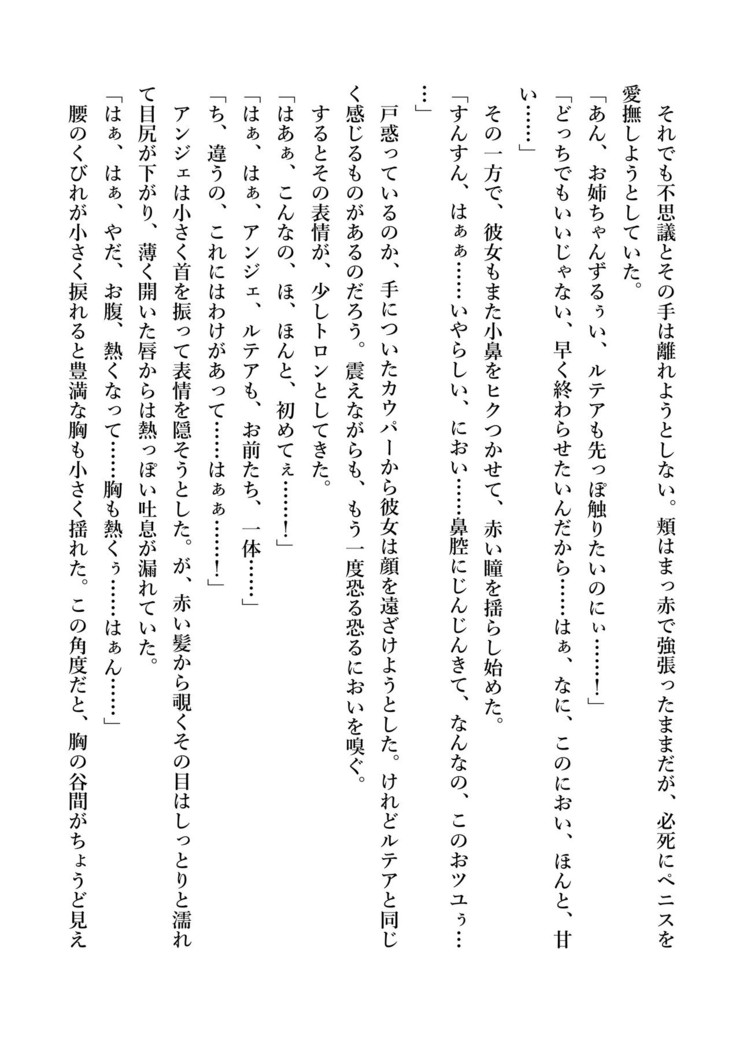 それでも不思議とその手は離れようとしない。頬はまっ赤で強張ったままだが、必死にペニスを
愛撫しようとしていた。
「あん、お姉ちゃんずるぅい、ルテアも先っぽ触りたいのにぃ……！」
「どっちでもいいじゃない、早く終わらせたいんだから……はぁ、なに、このにおい、ほんと、甘
い……」
　その一方で、彼女もまた小鼻をヒクつかせて、赤い瞳を揺らし始めた。
「すんすん、はぁぁ……いやらしい、におい……鼻腔にじんじんきて、なんなの、このおツユぅ…
…」
　戸惑っているのか、手についたカウパーから彼女は顔を遠ざけようとした。けれどルテアと同じ
く感じるものがあるのだろう。震えながらも、もう一度恐る恐るにおいを嗅ぐ。
　するとその表情が、少しトロンとしてきた。
「はあぁ、こんなの、ほ、ほんと、初めてぇ……！」
「はぁ、はぁ、アンジェ、ルテアも、お前たち、一体……」
「ち、違うの、これにはわけがあって……はぁぁ……！」
　アンジェは小さく首を振って表情を隠そうとした。が、赤い髪から覗くその目はしっとりと濡れ
て目尻が下がり、薄く開いた唇からは熱っぽい吐息が漏れていた。
「はぁ、はぁ、やだ、お腹、熱くなって……胸も熱くぅ……はぁん……」
　腰のくびれが小さく捩れると豊満な胸も小さく揺れた。この角度だと、胸の谷間がちょうど見え